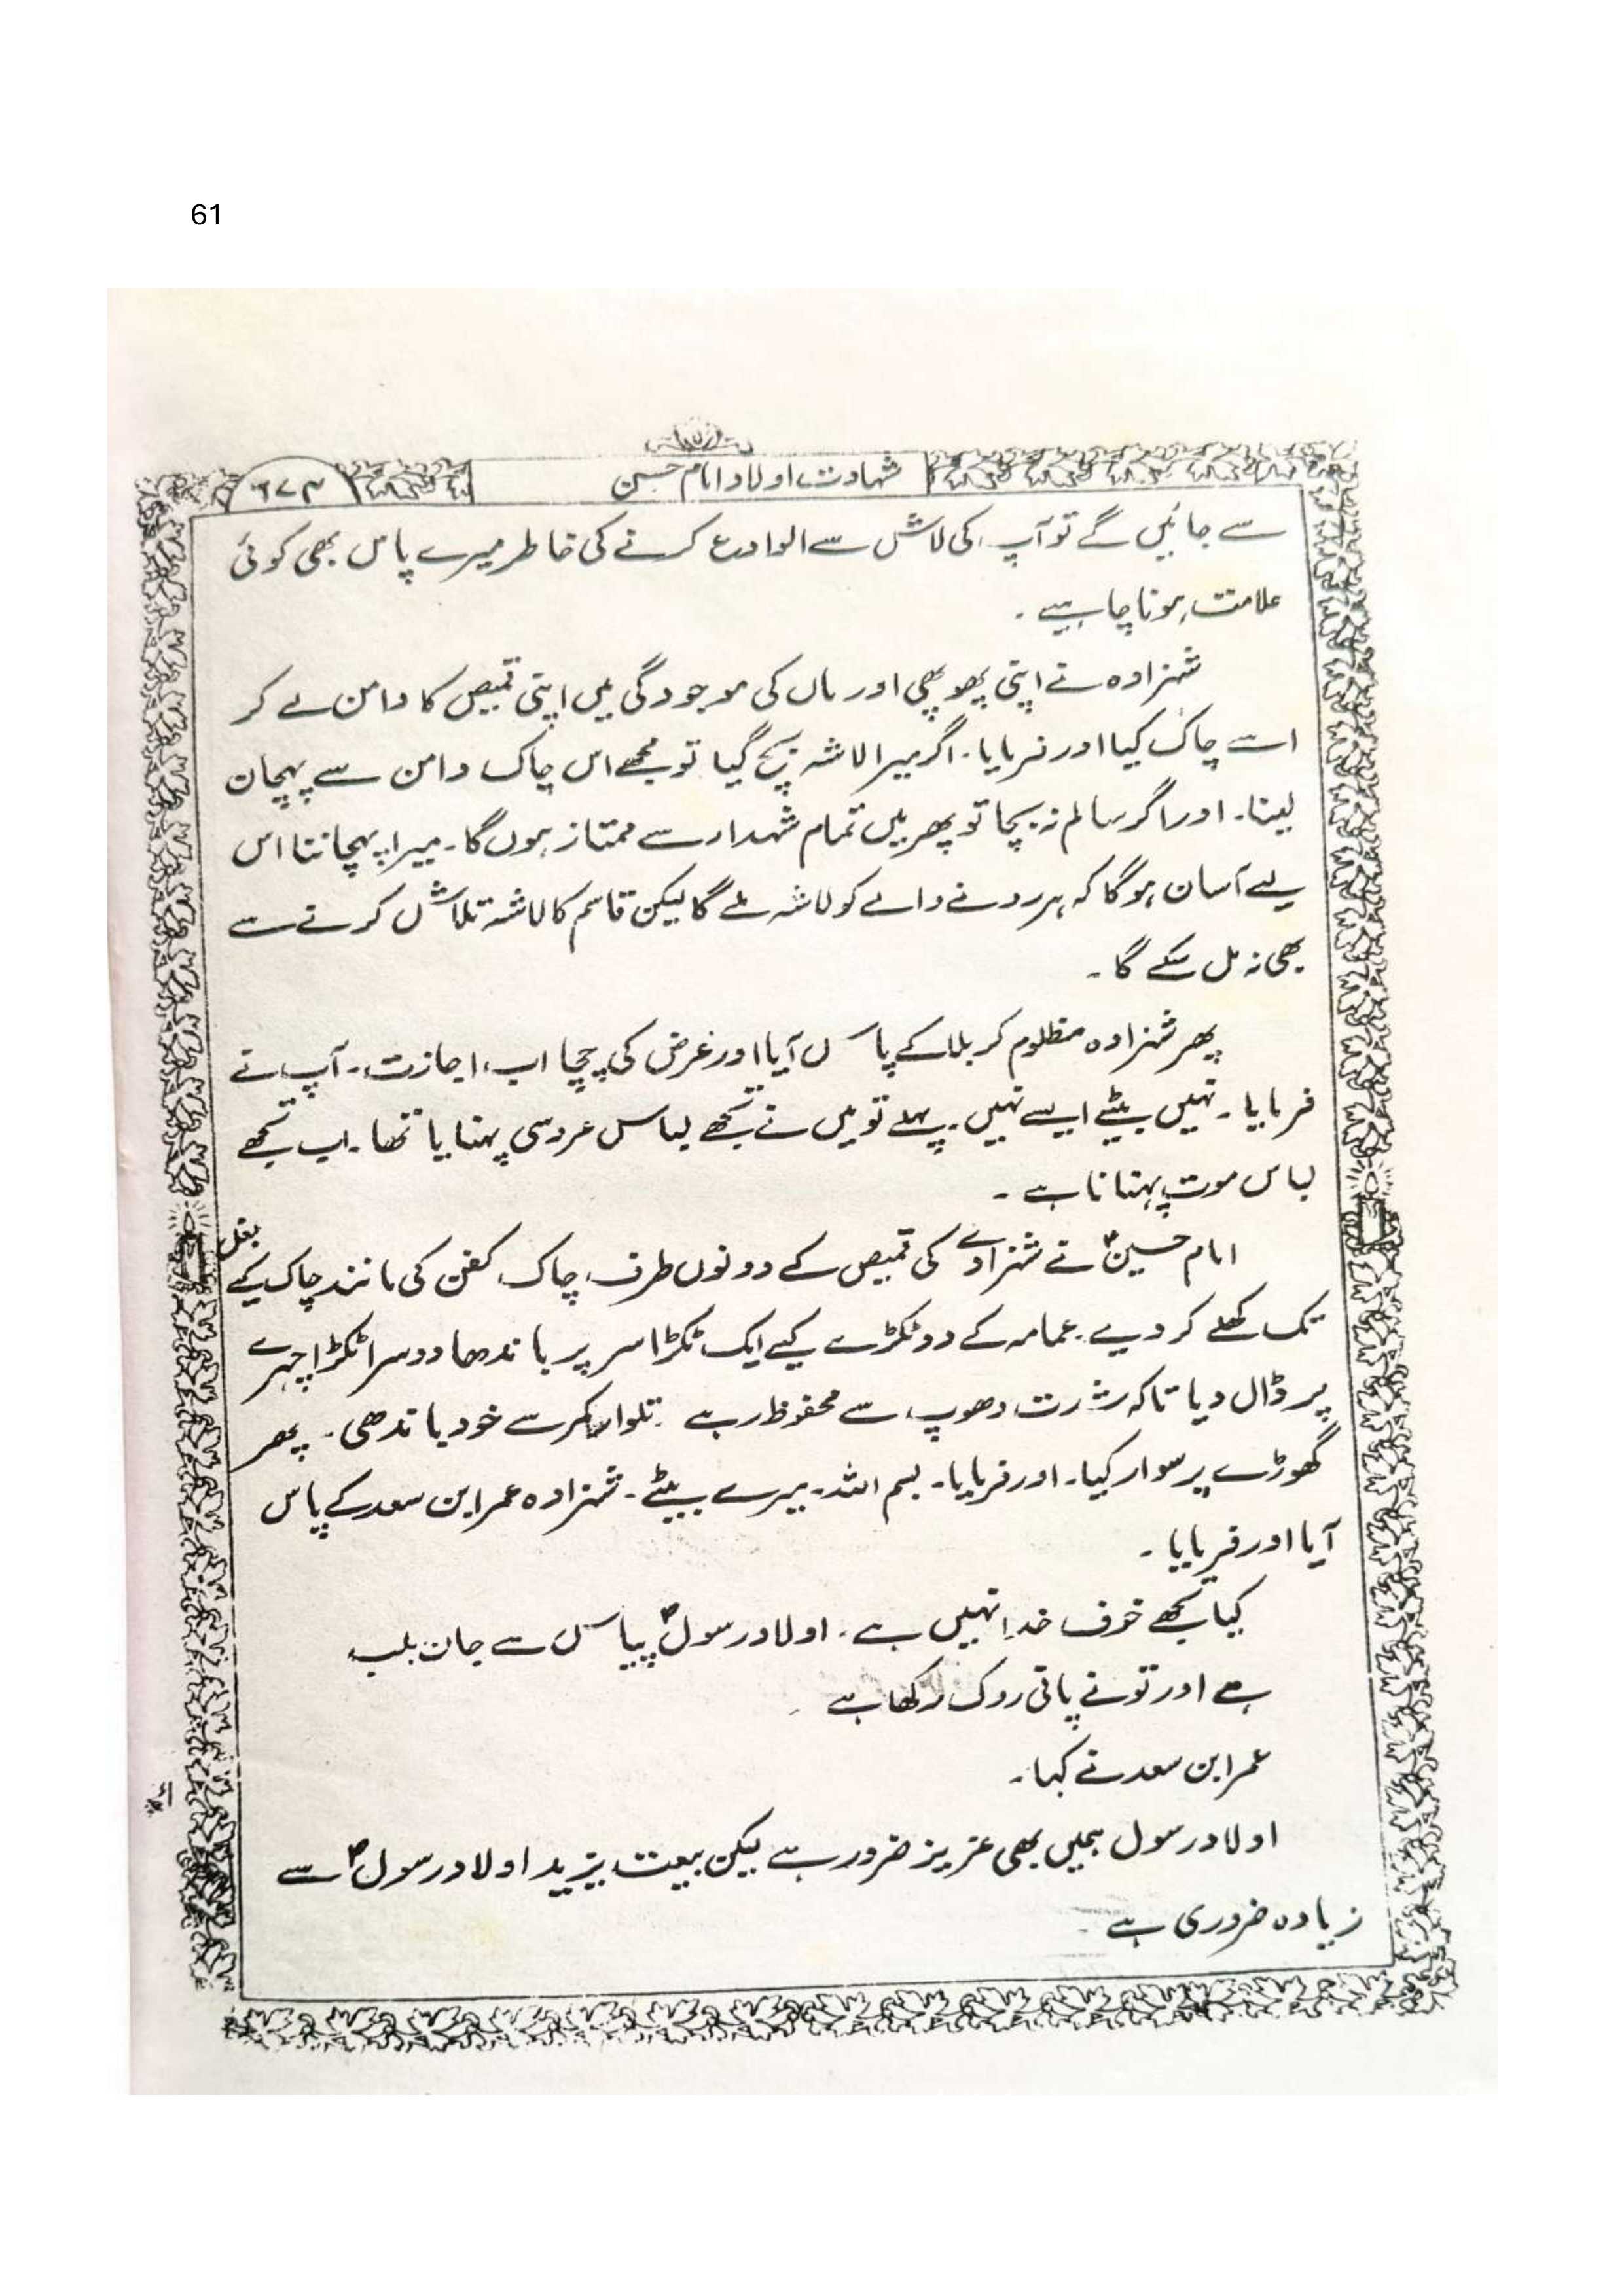 61
شہادت اولاد امام حسین
۶۷۳
سے جائیں گے تو آپ کی لاش سے الوداع کرنے کی خاطر میرے پاس بھی کوئی
علامت ہونا چاہیے ۔
شہزادہ نے اپنی پھوپھی اور ماں کی موجودگی میں اپنی قمیص کا دامن لے کر
اسے چاک کیا اور فرمایا ۔ اگر میرا لاشہ بچ گیا تو مجھے اس چاک دامن سے پہچان
لینا ۔ اور اگر سالم نہ بچا تو پھر میں تمام شہداء سے ممتاز ہوں گا ۔ میرا پہچاننا اس
لیے آسان ہو گا کہ ہر رونے والے کو لاشہ ملے گا لیکن قاسم کا لاشہ تلاش کرنے سے
بھی نہ مل سکے گا ۔
پھر شہزادہ مظلوم کربلا کے پاس آیا اور عرض کی چچا اب اجازت ۔ آپ نے
فرمایا ۔ نہیں بیٹے ایسے نہیں ۔ پہلے تو میں نے تجھے لباس عروسی پہنایا تھا ۔ اب تجھے
لباس موت پہنانا ہے ۔
امام حسینؑ نے شہزادے کی قمیص کے دونوں طرف چاک کفن کی مانند چاک کیے بغل
تک کھلے کر دیے ۔ عمامہ کے دو ٹکڑے کیے ایک ٹکڑا سر پر باندھا دوسرا ٹکڑا چہرے
پر ڈال دیا تاکہ شدت دھوپ سے محفوظ رہے ۔ تلوار کمر سے خود باندھی ۔ پھر
گھوڑے پر سوار کیا ۔ اور فرمایا ۔ بسم اللہ ۔ میرے بیٹے ۔ شہزادہ عمر ابن سعد کے پاس
آیا اور فرمایا ۔
کیا تجھے خوف خدا نہیں ہے ۔ اولاد رسولؐ پیاس سے جان بلب
ہے اور تو نے پانی روک رکھا ہے
عمر ابن سعد نے کہا ۔
اولاد رسول ہمیں بھی عزیز ضرور ہے لیکن بیعت یزید اولاد رسولؐ سے
زیادہ ضروری ہے